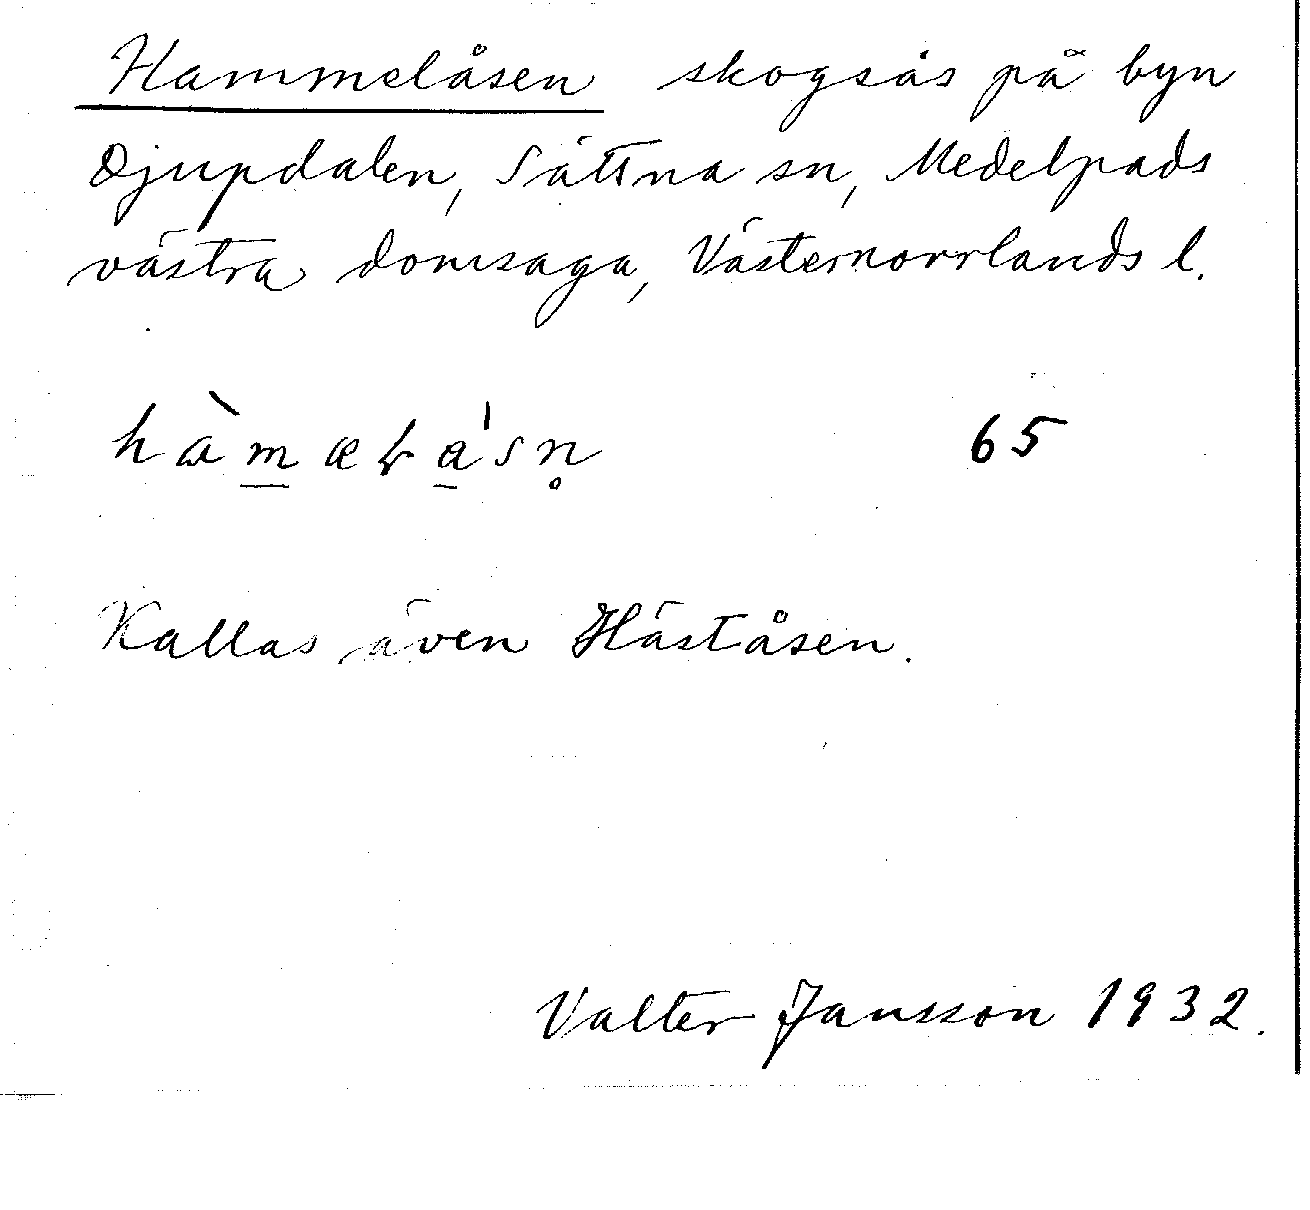 Hammelåsen skogsås på byn
Djupdalen, Sättna sn, Medelpads
västra domsaga, Västernorrlands l.
65
Kallas även Häståsen.
Valter Jansson 1932.